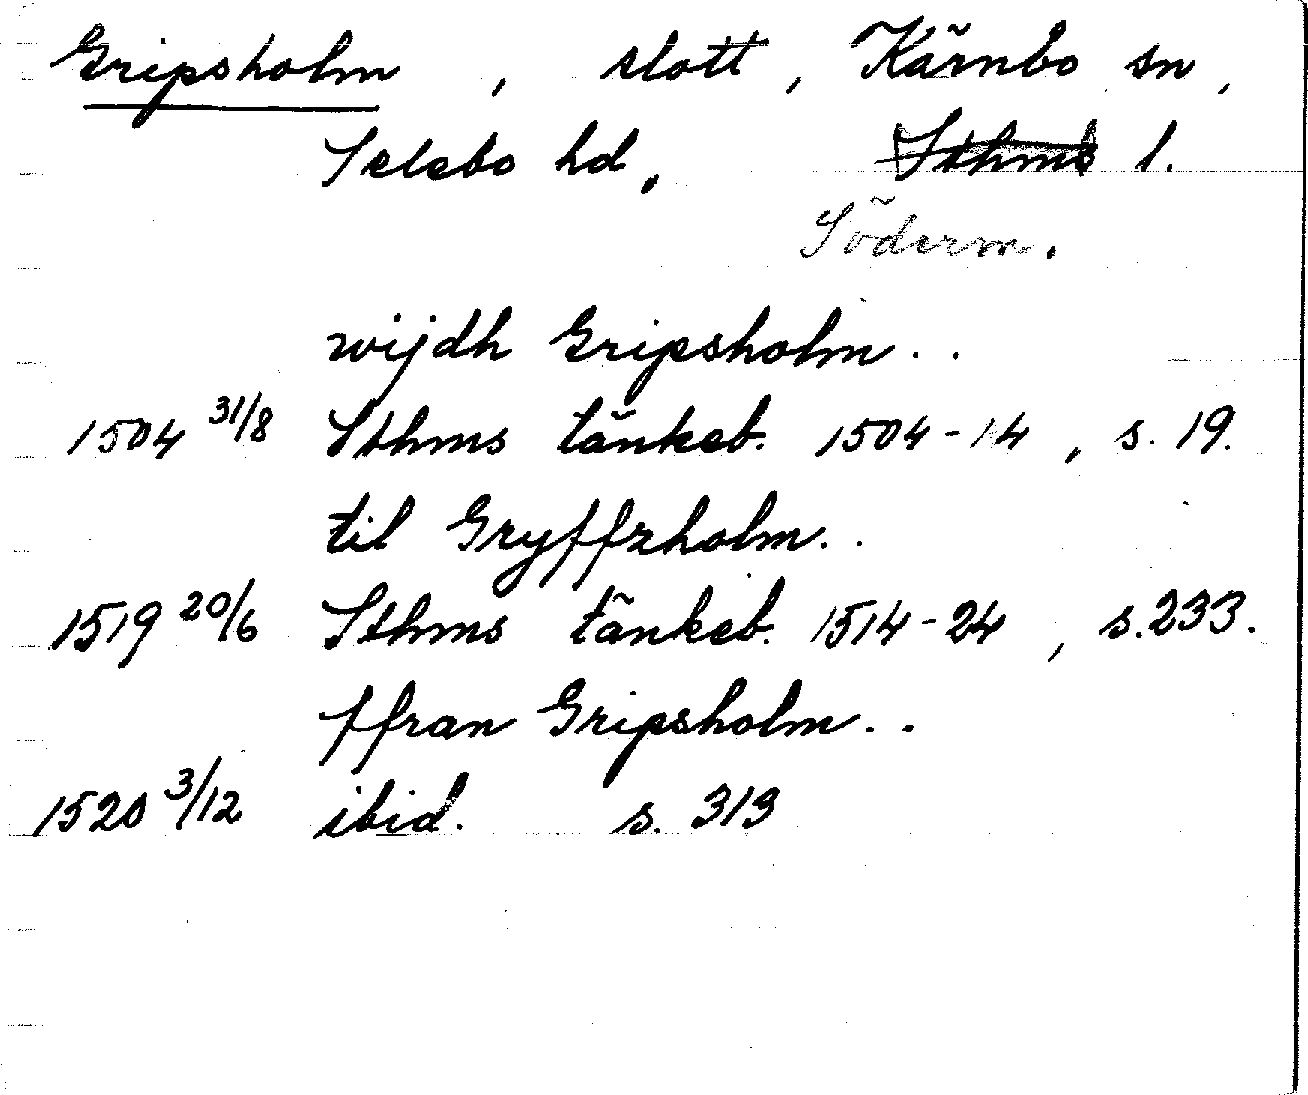 Gripsholm, slott, Kärnbo sn,
Selebo hd, Sthms l.
Söderm.
wijdh Gripsholm..
1504 31/8 Sthms tänkeb. 1504-14, s. 19.
til Gryffzholm..
1519 20/6 Sthms tänkeb. 1514-24, s. 233.
ffran Gripsholm..
1520 3/12 ibid. s. 313